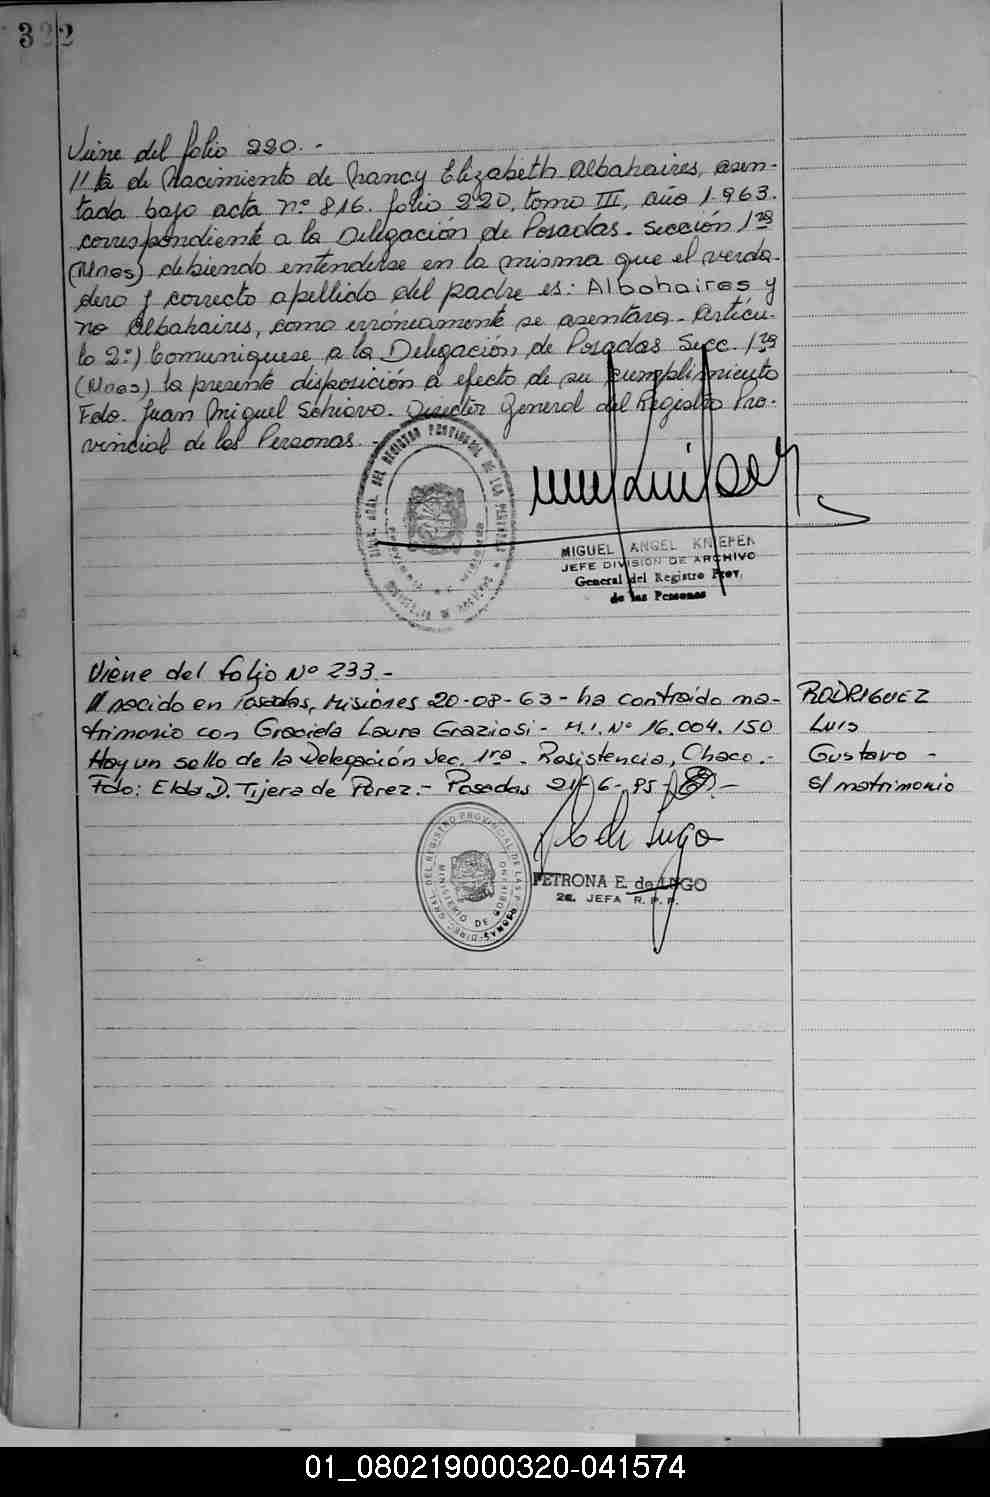 322
Viene del folio 220.-
//ta de Nacimiento de Nancy Elizabeth Albahaires, asen-
tada bajo acta nº 816. folio 220, tomo III, año 1.963.
correspondiente a la Delegación de Posadas. Sección 1ra
(Mnes) debiendo entenderse en la misma que el verda-
dero y correcto apellido del padre es: Albohaires y
no Albahaires, como erróneamente se asentara.- Artícu-
lo 2º) Comuníquese a la Delegación de Posadas Secc. 1ra
(Mnes) la presente disposición a efecto de su cumplimiento
Fdo. Juan Miguel Schiavo. Director General del Registro Pro-
vincial de las Personas.-
MIGUEL ANGEL KNIEPER
JEFE DIVISION DE ARCHIVO
General del Registro Prov.
de las Personas
Viene del folio Nº 233.-
// nacido en Posadas, Misiones 20-08-63- ha contraído ma-
trimonio con Graciela Laura Graziosi- M.I. Nº 16.004.150
Hay un sello de la Delegación Sec. 1ra. Resistencia, Chaco.-
Fdo: Elda D. Tijera de Perez.- Posadas 21-6-95-
RODRIGUEZ
Luis
Gustavo -
s/ matrimonio
DIREC. GRAL. DEL REGISTRO PROVINCIAL DE LAS PERSONAS
MINISTERIO DE GOBIERNO
PETRONA E. de LUGO
2a. JEFA R. P. P.
01_080219000320-041574